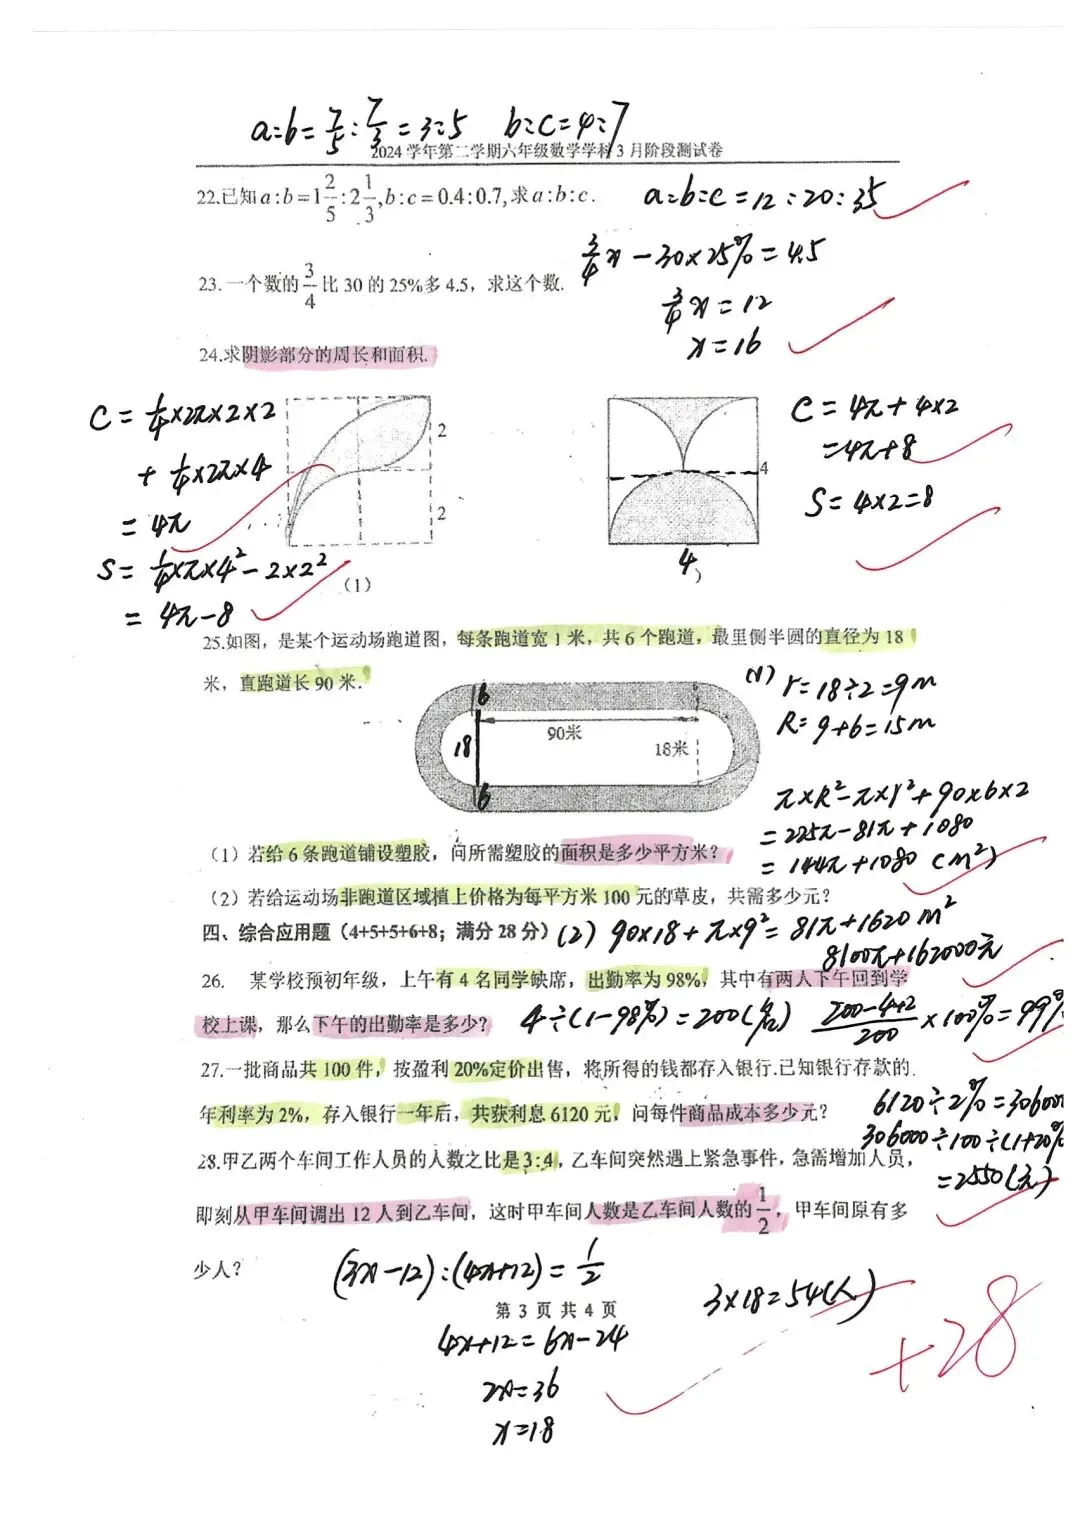 a:b=7/5:7/3=3:5 b:c=4:7
2024 学年第二学期六年级数学学科 3 月阶段测试卷
22.已知 a:b=1 2/5:2 1/3,b:c=0.4:0.7,求 a:b:c.
a:b:c=12:20:35
3/4x-30×25%=4.5
23.一个数的 3/4 比 30 的 25%多 4.5，求这个数.
3/4x=12
x=16
24.求阴影部分的周长和面积.
C=1/4×2π×2×2
+1/4×2π×4
=4π
S=1/4×π×4²-2×2²
=4π-8
2
2
(1)
4
4
)
C=4π+4×2
=4π+8
S=4×2=8
25.如图，是某个运动场跑道图，每条跑道宽 1 米，共 6 个跑道，最里侧半圆的直径为 18
米，直跑道长 90 米.
6
18
6
90米
18米
(1) r=18÷2=9m
R=9+6=15m
π×R²-π×r²+90×6×2
=225π-81π+1080
=144π+1080 (m²)
（1）若给 6 条跑道铺设塑胶，问所需塑胶的面积是多少平方米？
（2）若给运动场非跑道区域植上价格为每平方米 100 元的草皮，共需多少元？
四、综合应用题（4+5+5+6+8；满分 28 分）
(2) 90×18+π×9²=81π+1620m²
8100π+162000元
26. 某学校预初年级，上午有 4 名同学缺席，出勤率为 98%，其中有两人下午回到学
校上课，那么下午的出勤率是多少？
4÷(1-98%)=200(名) 200-4+2/200×100%=99%
27.一批商品共 100 件，按盈利 20%定价出售，将所得的钱都存入银行.已知银行存款的
年利率为 2%，存入银行一年后，共获利息 6120 元，问每件商品成本多少元？
6120÷2%=306000
306000÷100÷(1+20%
=2550(元)
28.甲乙两个车间工作人员的人数之比是 3:4，乙车间突然遇上紧急事件，急需增加人员，
即刻从甲车间调出 12 人到乙车间，这时甲车间人数是乙车间人数的 1/2，甲车间原有多
少人？
(3x-12):(4x+12)=1/2
3×18=54(人)
第 3 页 共 4 页
4x+12=6x-24
2x=36
x=18
+28